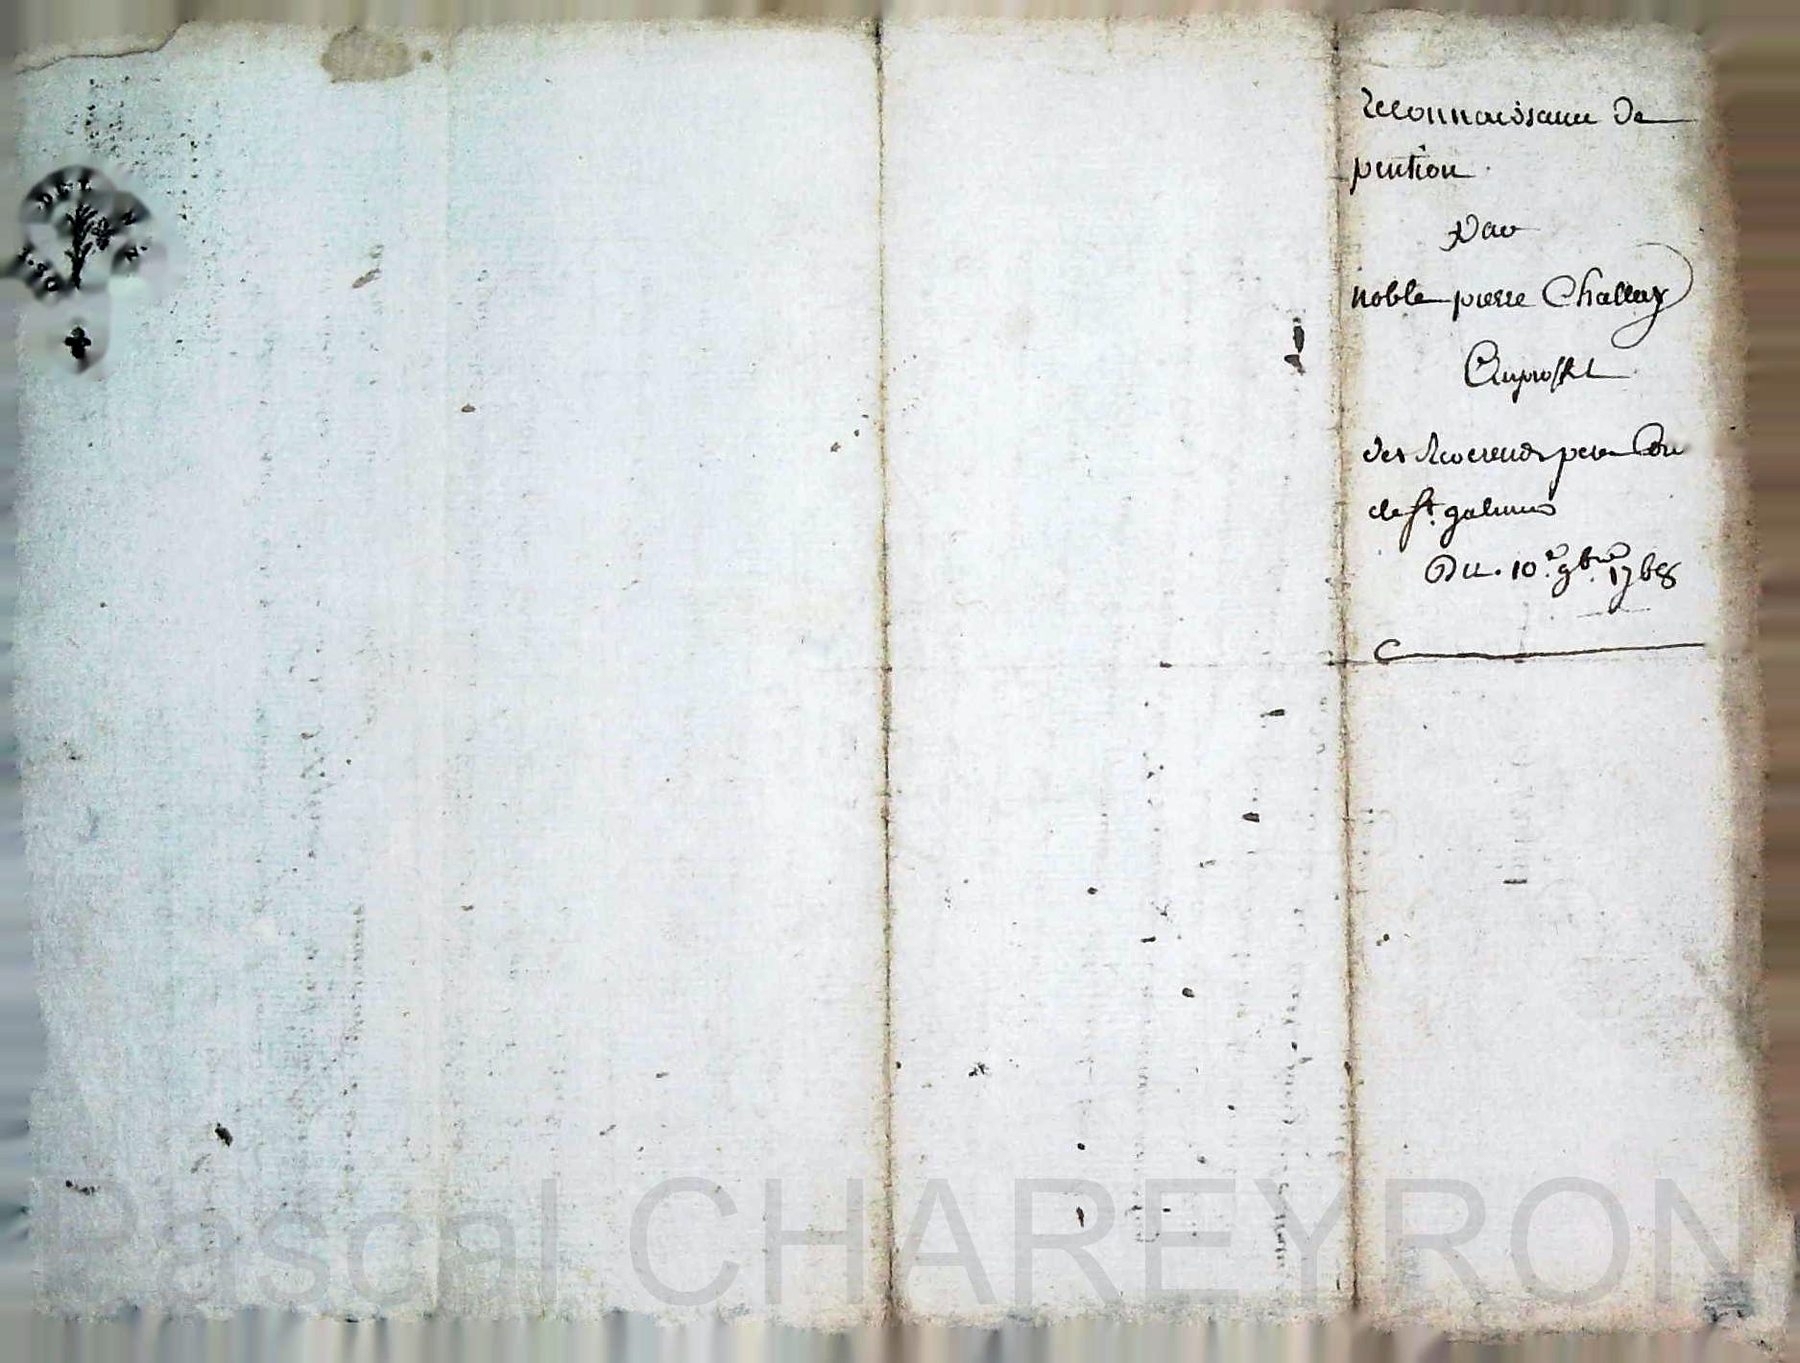 reconnaissance de
pention
par
noble pierre Challay
Au proffit
des Reverends peres
de st. galmier
Du. 10e. 9bre. 1768
Pascal CHAREYRON